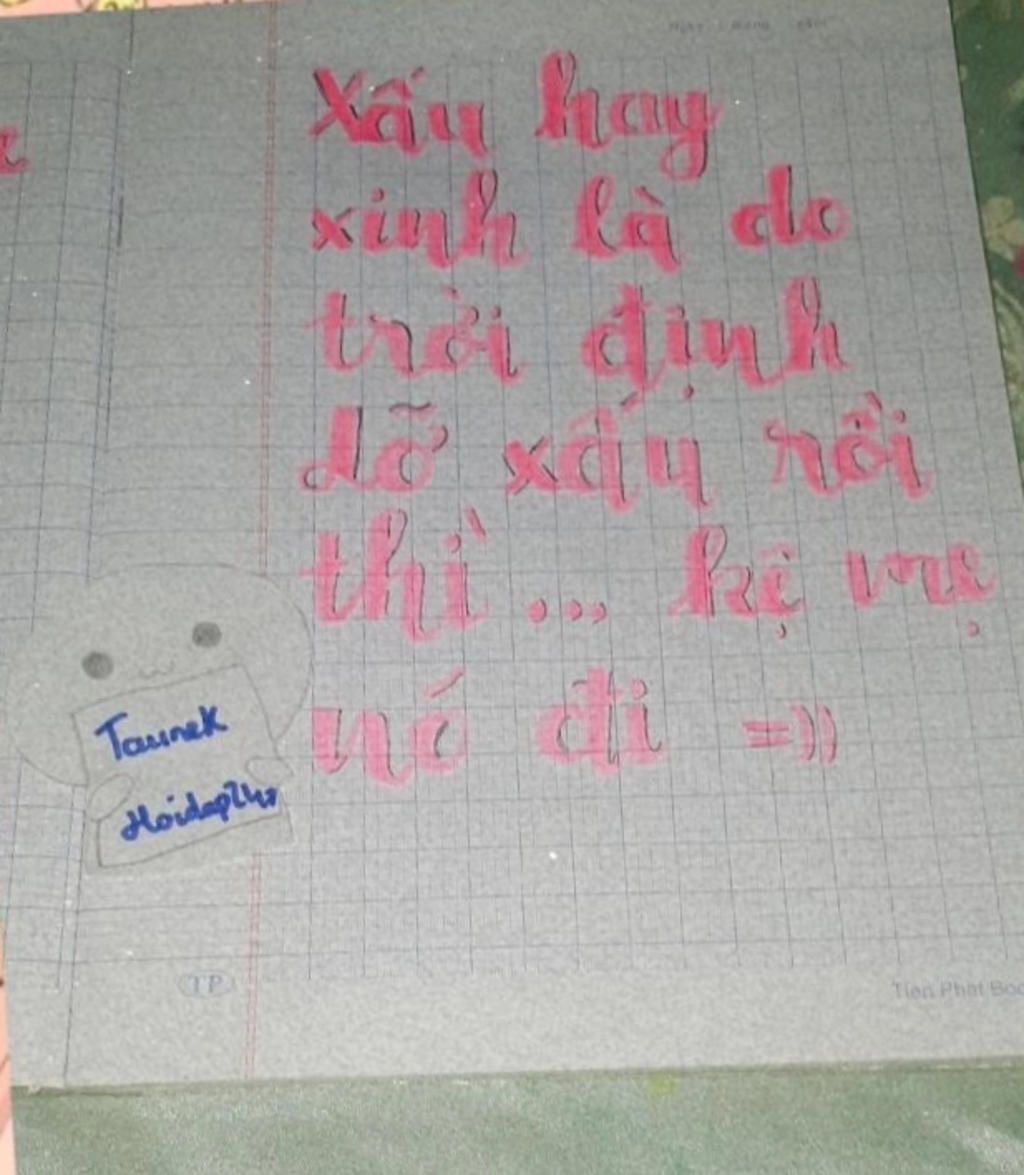 Xấu hay
xinh là do
trời định
dỡ xấu rồi
thì ... kệ mẹ
nó đi =))
Taunek
Hoidap247
TP
Tien Phat Boo